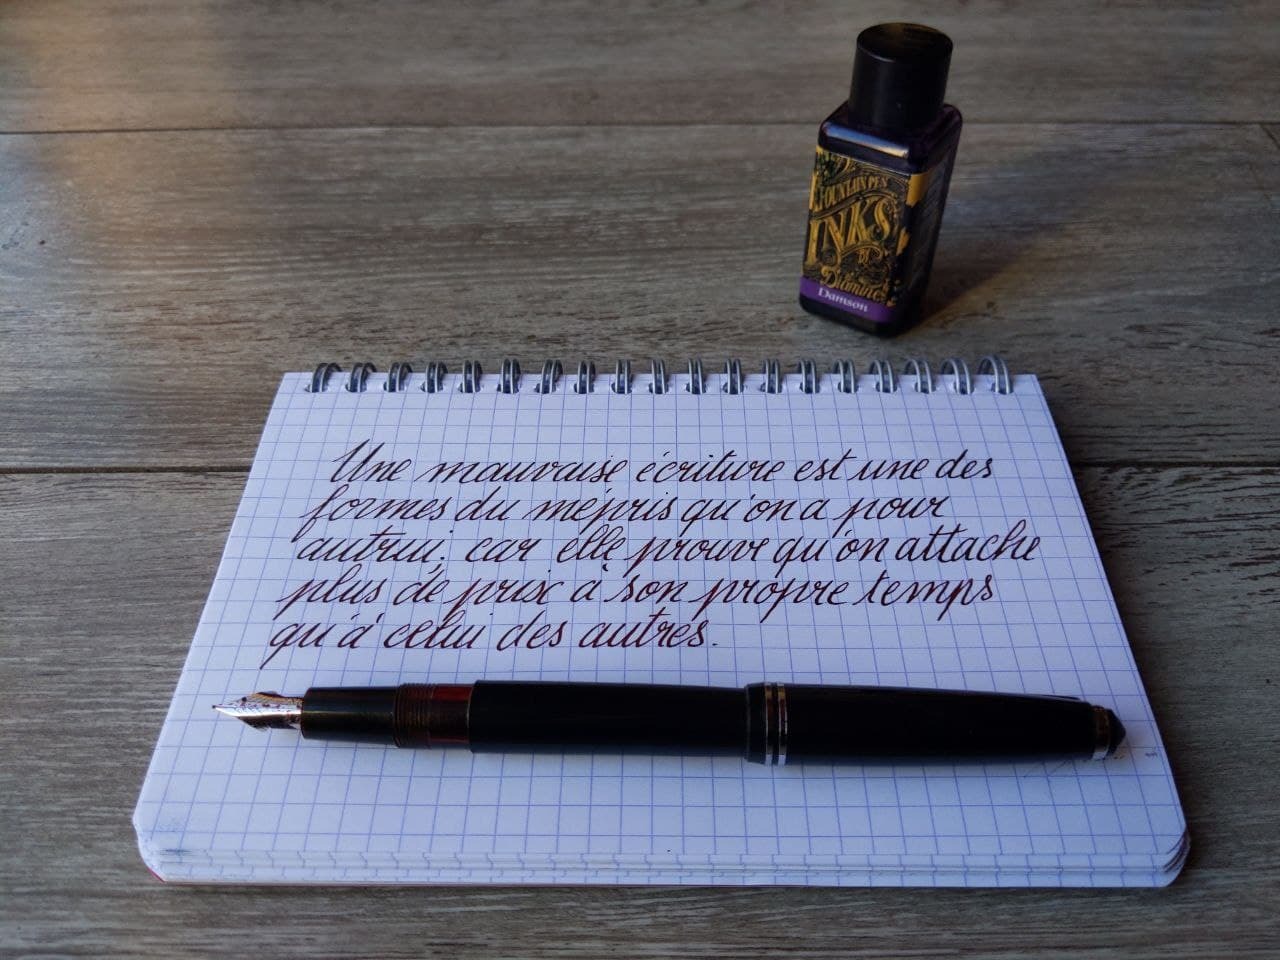 FOUNTAIN PEN
INKS
BY
Diamine
Damson
Une mauvaise écriture est une des
formes du mépris qu'on a pour
autrui, car elle prouve qu'on attache
plus de prix à son propre temps
qu'à celui des autres.